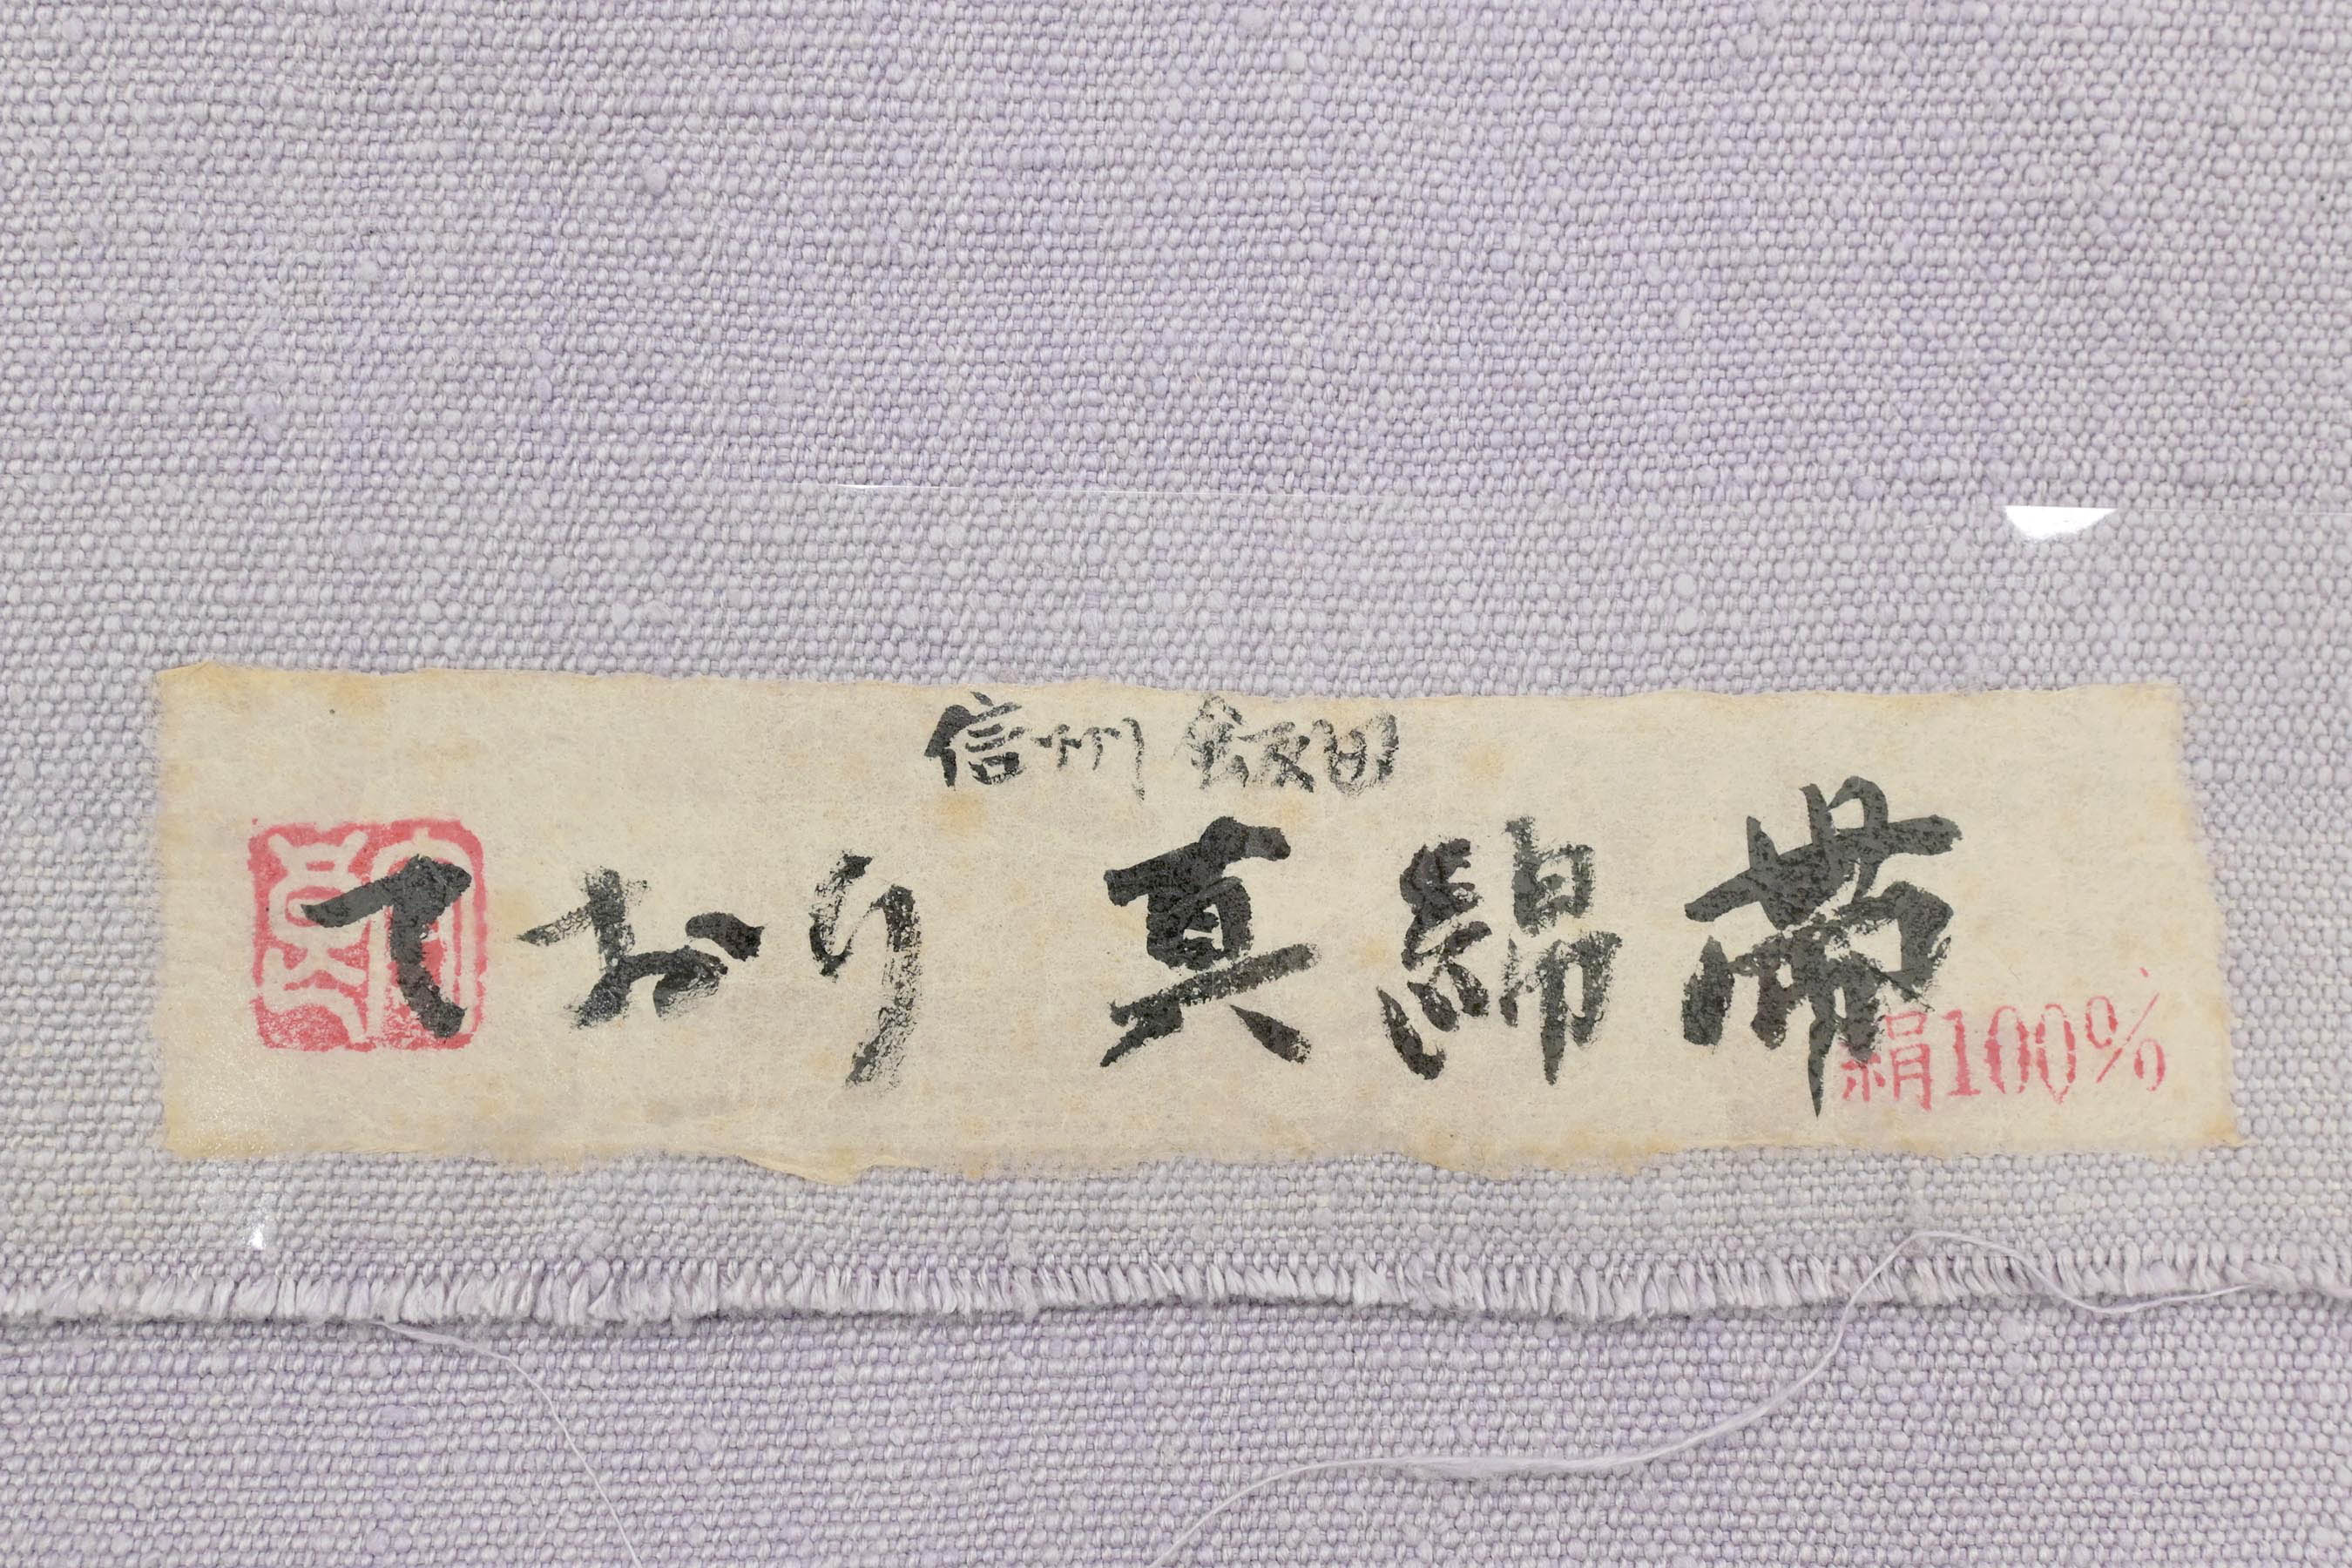 信州 飯田
ており 真綿帯
絹100%